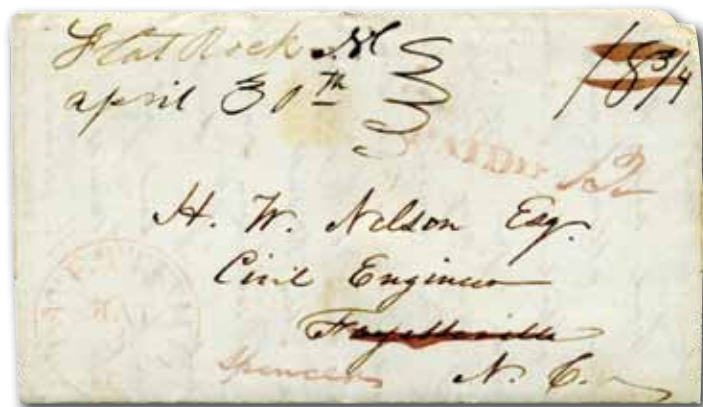 Flat Rock NC
april 30th
18 3/4
12
H. W. Nelson Esq.
Civil Engineer
Fayetteville
Spencers
N. C.